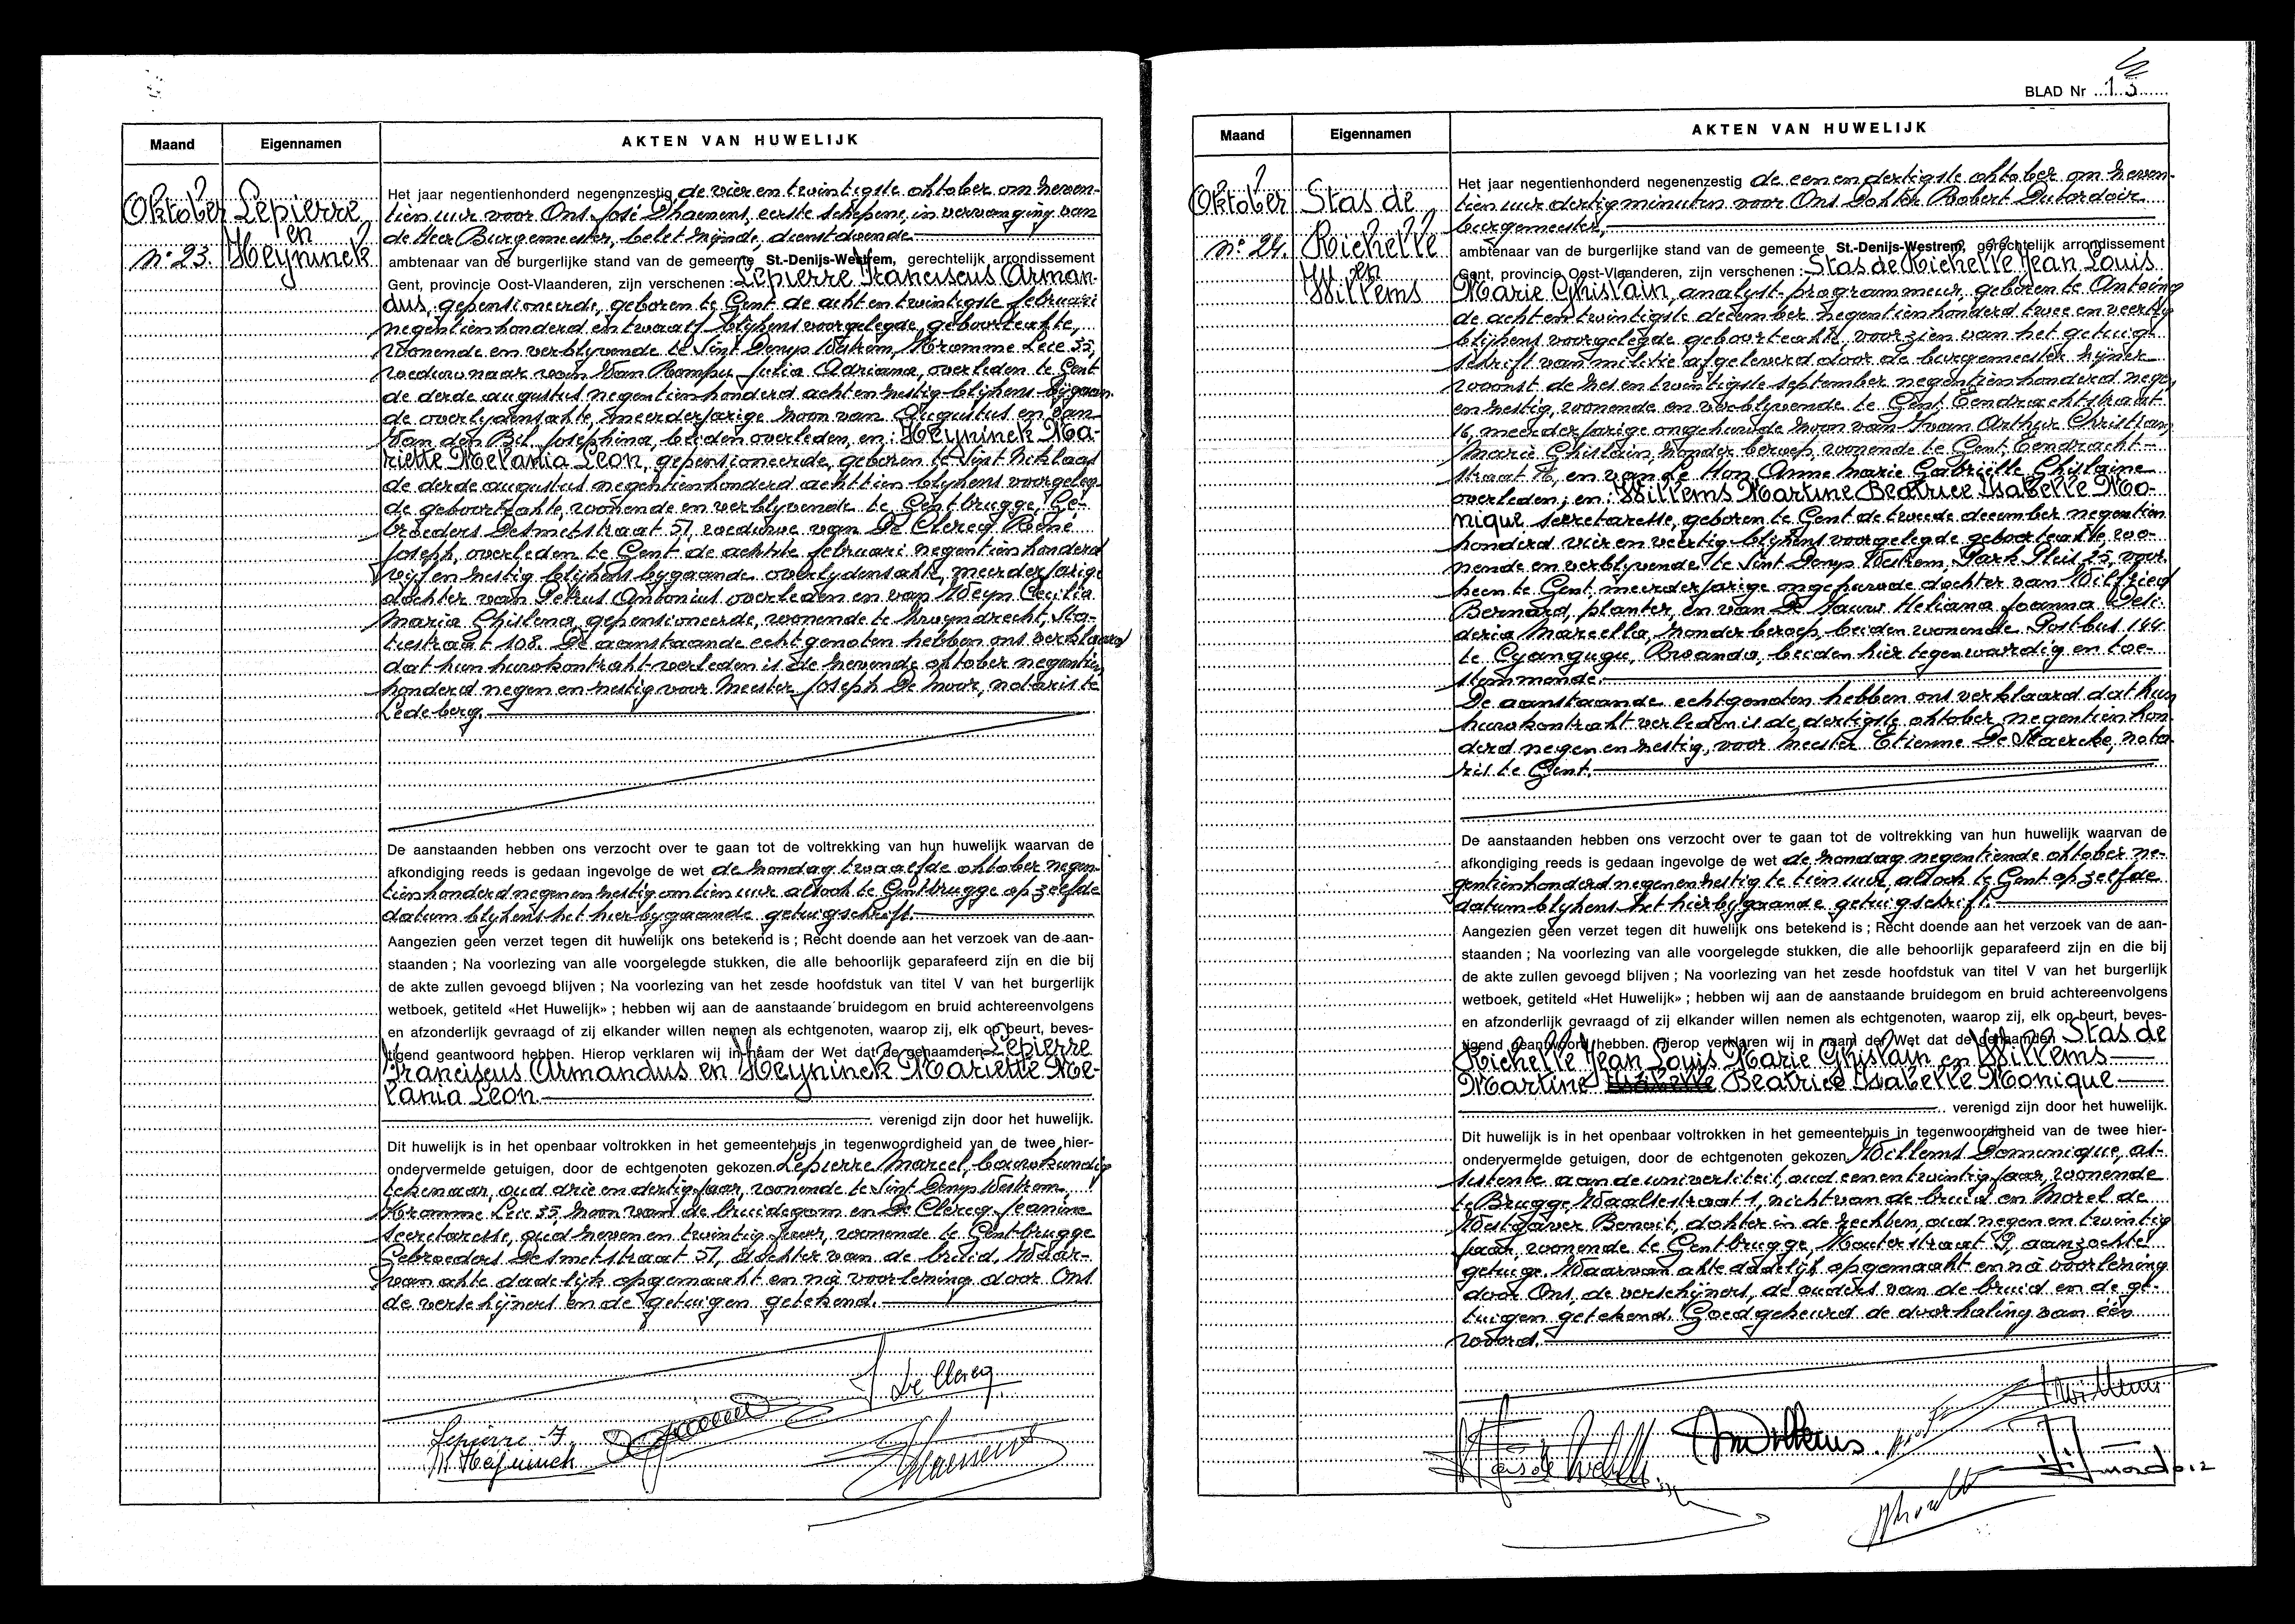 Maand
Eigennamen
AKTEN VAN HUWELIJK
Oktober
n° 23.
Lepierre
en
Heyninck
Het jaar negentienhonderd negenenzestig de vier en twintigste oktober om zeven-
tien uur voor Ons José Dhaenens, eerste schepene, in vervanging van
de Heer Burgemeester, belet zijnde, dienstdoende
ambtenaar van de burgerlijke stand van de gemeente St.-Denijs-Westrem, gerechtelijk arrondissement
Gent, provincie Oost-Vlaanderen, zijn verschenen : Lepierre Franciscus Arman-
dus, gepensioneerde, geboren te Gent de acht en twintigste februari
negentienhonderd en twaalf blijkens voorgelegde geboorteakte,
wonende en verblyvende te Sint Denys Westrem, Kromme Leie 55,
weduwnaar van Van Rompu Julia Adriana, overleden te Gent
de derde augustus negentienhonderd acht en zestig blijkens bijgaan-
de overlydensakte, meerderjarige zoon van Augustus en van
Van den Bil Josephina, beiden overleden, en : Heyninck Ma-
riette Melania Leon, gepensioneerde, geboren te Sint Niklaas
de derde augustus negentienhonderd achttien blijkens voorgeleg-
de geboorteakte, wonende en verblyvende te Gentbrugge, Ge-
broeders Desmetstraat 51, weduwe van De Clercq René
Joseph, overleden te Gent de achtste februari negentienhonderd
vijf en zestig blijkens bygaande overlydensakte, meerderjarige
dochter van Petrus Antonius overleden en van Weyn Cecilia
Maria Chislena, gepensioneerde, wonende te Zwyndrecht, Sta-
tiestraat 108. De aanstaande echtgenoten hebben ons verklaard
dat hun huwkontrakt verleden is de zevende oktober negentien-
honderd negen en zestig voor Meester Joseph De Moor, notaris te
Ledeberg.
De aanstaanden hebben ons verzocht over te gaan tot de voltrekking van hun huwelijk waarvan de
afkondiging reeds is gedaan ingevolge de wet de zondag twaalfde oktober negen-
tienhonderd negen en zestig om tien uur alsook te Gentbrugge op zelfde
datum blykens het hier bygaande getuigschrift.
Aangezien geen verzet tegen dit huwelijk ons betekend is ; Recht doende aan het verzoek van de aan-
staanden ; Na voorlezing van alle voorgelegde stukken, die alle behoorlijk geparafeerd zijn en die bij
de akte zullen gevoegd blijven ; Na voorlezing van het zesde hoofdstuk van titel V van het burgerlijk
wetboek, getiteld «Het Huwelijk» ; hebben wij aan de aanstaande bruidegom en bruid achtereenvolgens
en afzonderlijk gevraagd of zij elkander willen nemen als echtgenoten, waarop zij, elk op beurt, beves-
tigend geantwoord hebben. Hierop verklaren wij in naam der Wet dat de genaamden Lepierre
Franciscus Armandus en Heyninck Mariette Me-
lania Leon
verenigd zijn door het huwelijk.
Dit huwelijk is in het openbaar voltrokken in het gemeentehuis in tegenwoordigheid van de twee hier-
ondervermelde getuigen, door de echtgenoten gekozen. Lepierre Marcel, bouwkundig
tekenaar, oud drie en dertig jaar, wonende te Sint Denys Westrem
Kromme Leie 55, zoon van de bruidegom en De Clercq Jeanine
secretaresse, oud zeven en twintig jaar, wonende te Gentbrugge
Gebroeders Desmetstraat 51, dochter van de bruid, Waar-
van akte dadelijk opgemaakt en nà voorlezing door Ons
de verschijners en de getuigen getekend.
Lepierre F.
M. Heyninck
J. De Clercq
Dhaenens
BLAD Nr 13
Maand
Eigennamen
AKTEN VAN HUWELIJK
Oktober
n° 24.
Stas de
Richelle
en
Willems
Het jaar negentienhonderd negenenzestig de een en dertigste oktober om zeven-
tien uur dertig minuten voor Ons Dokter Robert Dutordoir
burgemeester,
ambtenaar van de burgerlijke stand van de gemeente St.-Denijs-Westrem, gerechtelijk arrondissement
Gent, provincie Oost-Vlaanderen, zijn verschenen : Stas de Richelle Jean Louis
Marie Ghislain, analyst-programmeur, geboren te Antoing
de acht en twintigste december negentienhonderd twee en veertig
blijkens voorgelegde geboorteakte, voorzien van het getuig-
schrift van militie afgeleverd door de burgemeester zijner
woonst de zes en twintigste september negentienhonderd negen
en zestig, wonende en verblyvende te Gent, Eendrachtstraat
16, meerderjarige ongehuwde zoon van Ivan Arthur Christian
Marie Ghislain, zonder beroep, wonende te Gent, Eendracht-
straat 16, en van de Hon Anne Marie Gabriëlle Ghislaine
overleden ; en : Willems Martine Beatrice Isabelle Mo-
nique secretaresse, geboren te Gent de tweede december negentien
honderd vier en veertig blijkens voorgelegde geboorteakte, wo-
nende en verblyvende te Sint Denys Westrem, Park Pleis 25, voor-
heen te Gent meerderjarige ongehuwde dochter van Wilfried
Bernard, planter, en van De Sauw Heliana Joanna Desi-
deria Marcella, zonder beroep, beiden wonende Postbus 144
te Cyangugu, Rwanda, beiden hier tegenwoordig en toe-
stemmende.
De aanstaande echtgenoten hebben ons verklaard dat hun
huwkontrakt verleden is de dertigste oktober negentienhon-
derd negen en zestig, voor meester Etienne De Staercke, nota-
ris te Gent.
De aanstaanden hebben ons verzocht over te gaan tot de voltrekking van hun huwelijk waarvan de
afkondiging reeds is gedaan ingevolge de wet de zondag negentiende oktober ne-
gentienhonderd negen en zestig te tien uur, alsook te Gent op zelfde
datum blykens het hierbygaande getuigschrift.
Aangezien geen verzet tegen dit huwelijk ons betekend is ; Recht doende aan het verzoek van de aan-
staanden ; Na voorlezing van alle voorgelegde stukken, die alle behoorlijk geparafeerd zijn en die bij
de akte zullen gevoegd blijven ; Na voorlezing van het zesde hoofdstuk van titel V van het burgerlijk
wetboek, getiteld «Het Huwelijk» ; hebben wij aan de aanstaande bruidegom en bruid achtereenvolgens
en afzonderlijk gevraagd of zij elkander willen nemen als echtgenoten, waarop zij, elk op beurt, beves-
tigend geantwoord hebben. Hierop verklaren wij in naam der Wet dat de genaamden Stas de
Richelle Jean Louis Marie Ghislain en Willems
Martine Isabelle Beatrice Isabelle Monique
verenigd zijn door het huwelijk.
Dit huwelijk is in het openbaar voltrokken in het gemeentehuis in tegenwoordigheid van de twee hier-
ondervermelde getuigen, door de echtgenoten gekozen. Willems Domenique, as-
sistente aan de universiteit, oud een en twintig jaar, wonende
te Brugge, Waalsestraat 1, nicht van de bruid en Morel de
Westgaver Benoit, dokter in de rechten, oud negen en twintig
jaar, wonende te Gentbrugge, Mouterstraat 9, aanzochte
getuige. Waarvan akte dadelijk opgemaakt en nà voorlezing
door Ons, de verschijners, de ouders van de bruid en de ge-
tuigen getekend. Goedgekeurd de doorhaling van één
woord.
Stas de Richelle
MWillems.
Willems